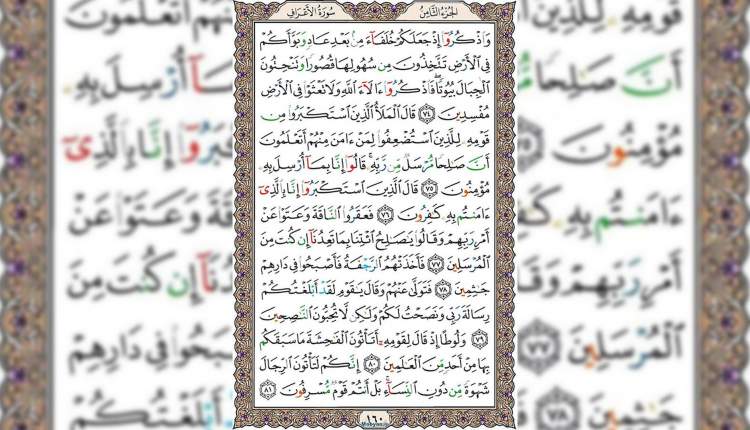 سُورَةُ الأَعْرَافِ
الجُزْءُ الثَّامِنُ
وَاذْكُرُوا إِذْ جَعَلَكُمْ خُلَفَاءَ مِنْ بَعْدِ عَادٍ وَبَوَّأَكُمْ
فِي الْأَرْضِ تَتَّخِذُونَ مِنْ سُهُولِهَا قُصُورًا وَتَنْحِتُونَ
الْجِبَالَ بُيُوتًا فَاذْكُرُوا ءَالَاءَ اللَّهِ وَلَا تَعْثَوْا فِي الْأَرْضِ
مُفْسِدِينَ ٧٤ قَالَ الْمَلَأُ الَّذِينَ اسْتَكْبَرُوا مِنْ
قَوْمِهِ لِلَّذِينَ اسْتُضْعِفُوا لِمَنْ ءَامَنَ مِنْهُمْ أَتَعْلَمُونَ
أَنَّ صَالِحًا مُرْسَلٌ مِنْ رَبِّهِ قَالُوا إِنَّا بِمَا أُرْسِلَ بِهِ
مُؤْمِنُونَ ٧٥ قَالَ الَّذِينَ اسْتَكْبَرُوا إِنَّا بِالَّذِي
ءَامَنْتُمْ بِهِ كَافِرُونَ ٧٦ فَعَقَرُوا النَّاقَةَ وَعَتَوْا عَنْ
أَمْرِ رَبِّهِمْ وَقَالُوا يَاصَالِحُ ائْتِنَا بِمَا تَعِدُنَا إِنْ كُنْتَ مِنَ
الْمُرْسَلِينَ ٧٧ فَأَخَذَتْهُمُ الرَّجْفَةُ فَأَصْبَحُوا فِي دَارِهِمْ
جَاثِمِينَ ٧٨ فَتَوَلَّى عَنْهُمْ وَقَالَ يَاقَوْمِ لَقَدْ أَبْلَغْتُكُمْ
رِسَالَةَ رَبِّي وَنَصَحْتُ لَكُمْ وَلَكِنْ لَا تُحِبُّونَ النَّاصِحِينَ
٧٩ وَلُوطًا إِذْ قَالَ لِقَوْمِهِ أَتَأْتُونَ الْفَاحِشَةَ مَا سَبَقَكُمْ
بِهَا مِنْ أَحَدٍ مِنَ الْعَالَمِينَ ٨٠ إِنَّكُمْ لَتَأْتُونَ الرِّجَالَ
شَهْوَةً مِنْ دُونِ النِّسَاءِ بَلْ أَنْتُمْ قَوْمٌ مُسْرِفُونَ ٨١
١٦٠